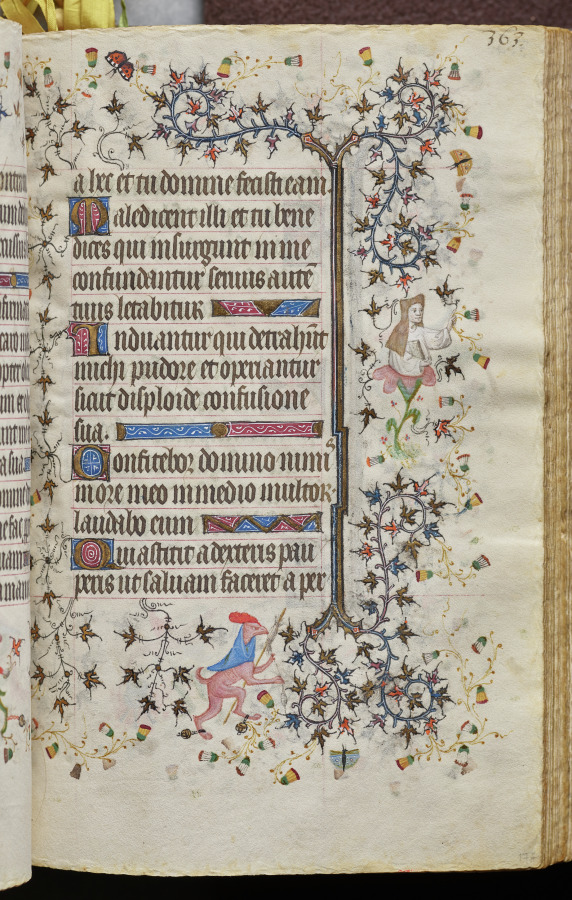 363.
a hec et tu domine fecisti eam.
Maledicent illi et tu bene
dices qui insurgunt in me
confundantur seruus autē
tuus letabitur
Induantur qui detrahūt
michi pudore et operiantur
sicut disploide confusione
sua.
Confitebor domino nimis
in ore meo in medio multoꝝ
laudabo eum
Quia astitit a dexteris pau
peris ut saluam faceret a per